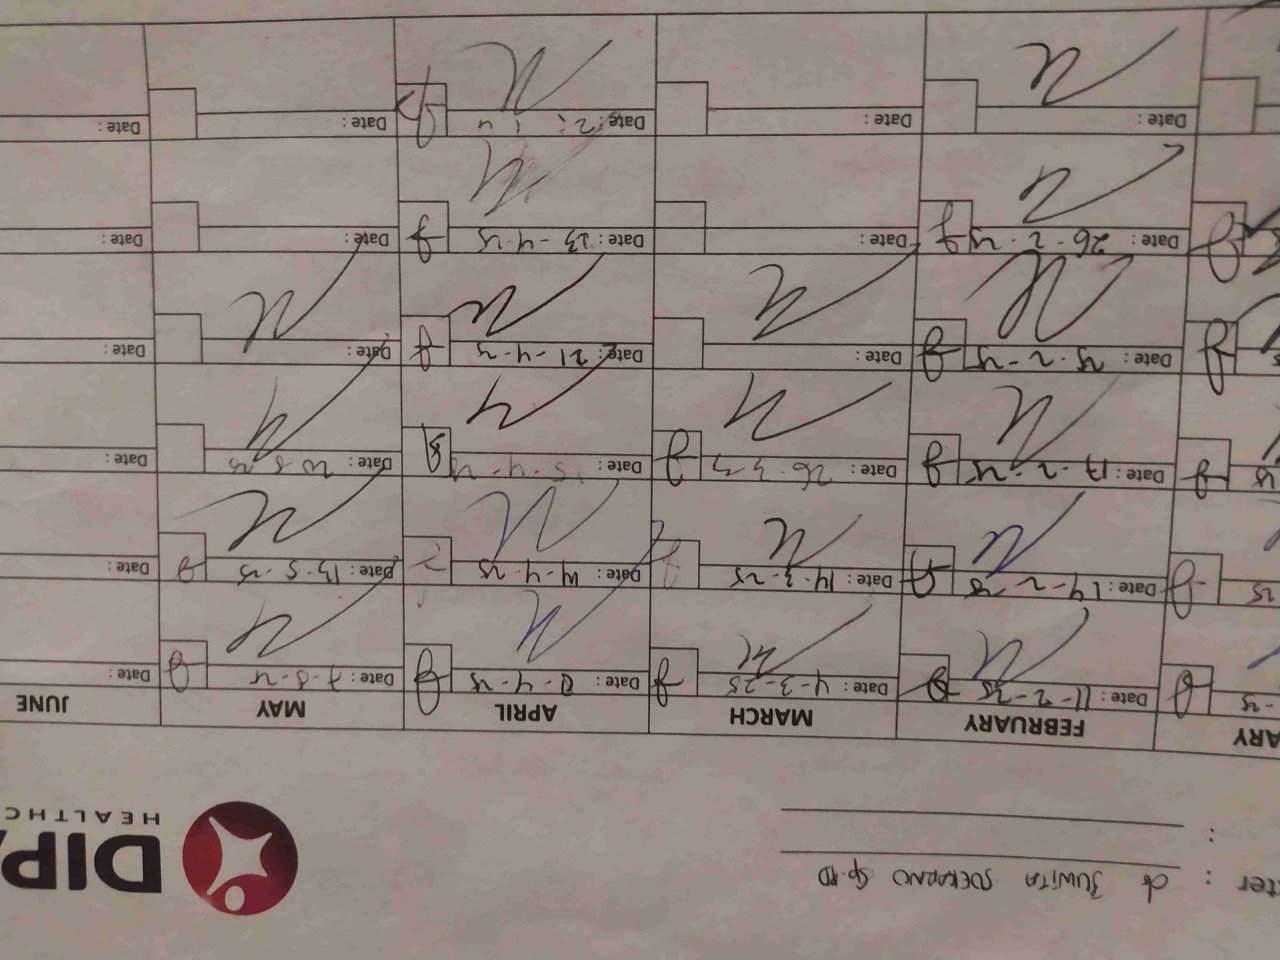 DIPA
HEALTHC
ter : dr JUWITA SOEKARNO Sp.PD
:
ARY FEBRUARY MARCH APRIL MAY JUNE
Date: 11-2-25 Date: 4-3-25 Date: 8-4-25 Date: 7-5-25 Date:
25 Date: 14-2-25 Date: 14-3-25 Date: 14-4-25 Date: 13-5-25 Date:
Date: 17-2-25 Date: 26-3-25 Date: 15-4-25 Date: 20-5-25 Date:
Date: 25-2-25 Date: Date: 21-4-25 Date: Date:
Date: 26-2-25 Date: Date: 23-4-25 Date: Date:
Date: Date: Date: Date: Date: